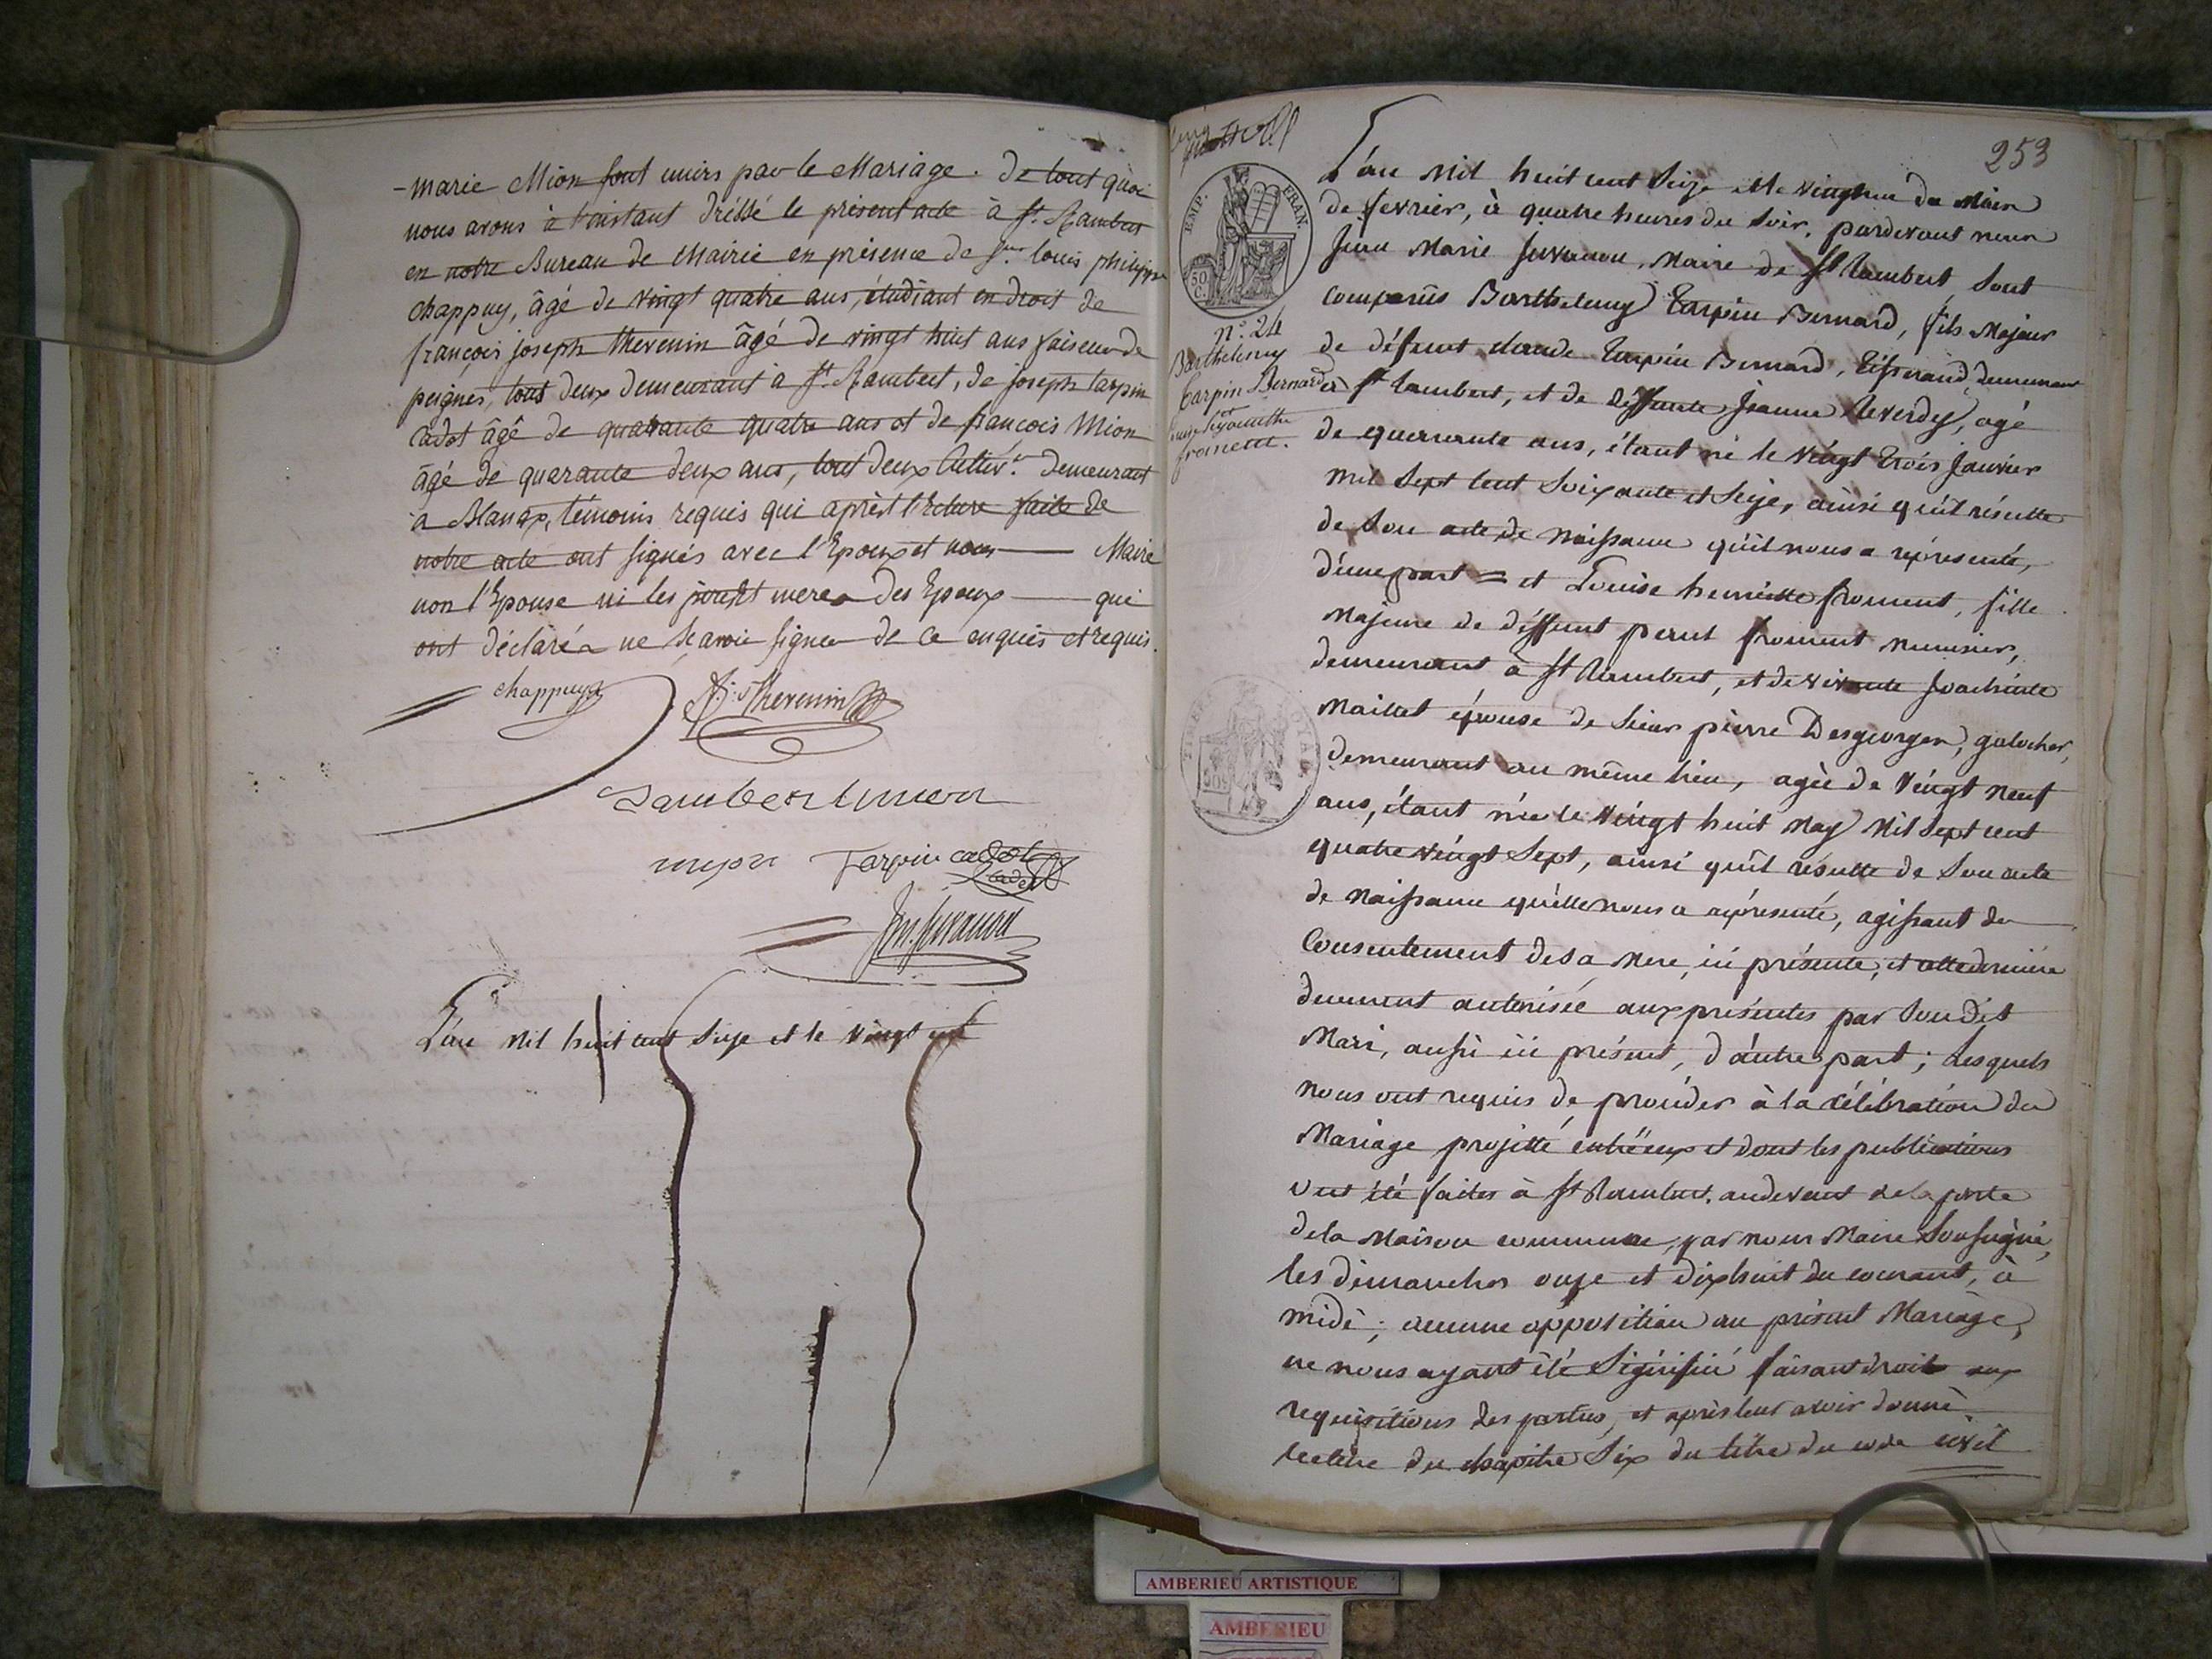 -marie Mion sont unirs par le Mariage. De tout quoi
nous avons à l'instant dréssé le présent acte à St. Rambert
en notre Bureau de Mairie en présence de Sr. louis philippe
chappuy, âgé de vingt quatre ans, étudiant en droit de
françois joseph thevenin âgé de vingt huit ans faiseur de
peignes, tous deux demeurant à St. Rambert, de joseph tarpin
cadot âgé de quarante quatre ans et de françois Mion
âgé de quarante deux ans, tous deux Cultivr. demeurant
à Blanaz, témoins requis qui après l'Ecture faite de
notre acte ont signés avec l'Epoux et nous — Maire
non l'Epouse ni les meres des Epoux — qui
ont déclarés ne sçavoir signer de ce enquis et requis.
chappuy
f. j. Thevenin
mion
Tarpin cadot
cadet
Jm. juvanon
L'an Mil huit cent Seize et le vingt un
253
EMP. FRAN.
50 C.
n°. 24
Barthelemy
Tarpin Bernard
et
froment.
L'an Mil huit cent Seize et le vingt un du Mois
de fevrier, à quatre heures du Soir, pardevant nous
Jean Marie Juvanon, Maire de St Rambert, Sont
comparûs Barthelemy Tarpin Bernard, fils Majeur
de défunt claude Tarpin Bernard, Tisserand, demeurant
à St Rambert, et de déffunte Jeanne Reverdy, agé
de quarante ans, étant né le vingt trois Janvier
mil Sept Cent Soixante et Seize, ainsi qu'il résulte
de Son acte de Naissance qu'il nous a réprésenté,
d'une part = et Louise henriette froment, fille
Majeure de déffunt froment menuisier,
demeurant à St Rambert, et de vivante
Maillet épouse de Sieur pierre Desgeorges, galocher,
demeurant au même lieu, agée de Vingt Neuf
ans, étant née le Vingt huit May Mil Sept cent
quatre vingt Sept, ainsi qu'il résulte de Son acte
de Naissance qu'elle nous a réprésenté, agissant du
Consentement de Sa Mere, ici présente, et cette derniére
duement autorisée aux présentes par Son dit
Mari, aussi ici présent, d'autre part; Lesquels
Nous ont requis de procéder à la célébration du
Mariage projetté entr'eux et dont les publications
ont été faites à St Rambert, audevant de la porte
de la Maison commune, par nous Maire Soussigné,
les dimanches onze et dixhuit du courant, à
midi; aucune opposition au présent Mariage,
ne nous ayant été Signifié faisant droit aux
requisitions des parties, et après leur avoir donné
lecture du chapitre Six du titre du code civil
AMBERIEU ARTISTIQUE
AMBERIEU